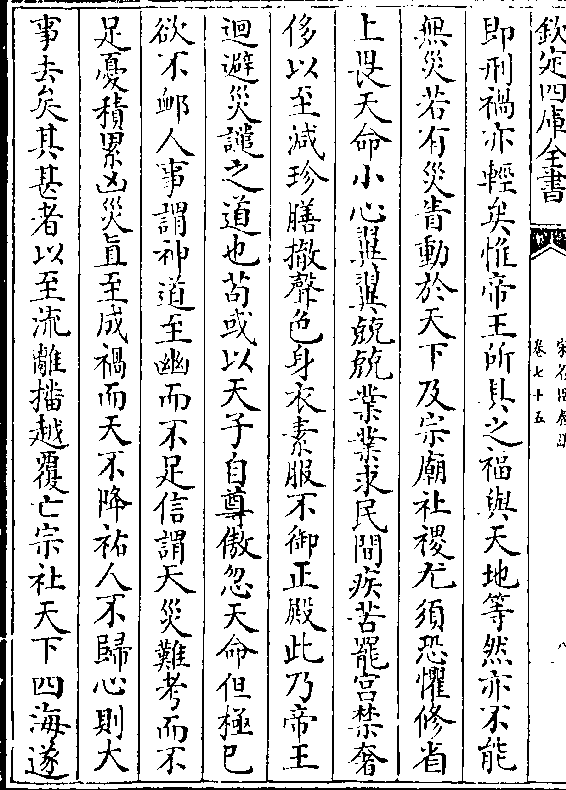 欽定四庫全書
卷七十五
八
即刑禍亦輕矣惟帝王所具之福與天地等然亦不能
無災若有災眚動於天下及宗廟社稷尤須恐懼修省
上畏天命小心翼翼兢兢業業求民間疾苦罷宫禁奢
侈以至减珍膳撤聲色身衣素服不御正殿此乃帝王
迴避災譴之道也苟或以天子自尊傲忽天命但極已
欲不衈人事謂神道至幽而不足信謂天災難考而不
足憂積累凶災直至成禍而天不降祐人不歸心則大
事去矣其甚者以至流離播越覆亡宗社天下四海遂